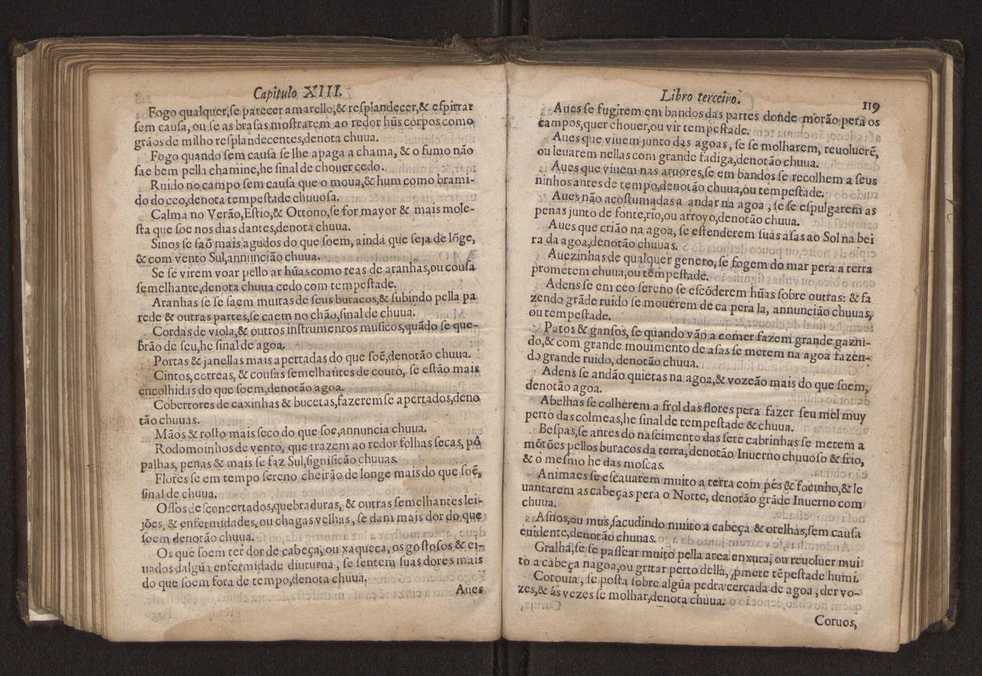 Capitulo XIII.
Fogo qualquer, se parecer amarello, & resplandecer, & espirrar
sem causa, ou se as brasas mostrarem ao redor hũs corpos como
grãos de milho resplandecentes, denota chuua.
Fogo quando sem causa se lhe apaga a chama, & o fumo não
sae bem pella chamine, he sinal de chouer cedo.
Ruido no campo sem causa que o moua, & hum como brami-
do do ceo, denota tempestade chuuosa.
Calma no Verão, Estio, & Ottono, se for mayor & mais mole-
sta que soe nos dias dantes, denota chuua.
Sinos se saõ mais agudos do que soem, ainda que seja de lõge,
& com vento Sul, annuncião chuua.
Se se virem voar pello ar hũas como teas de aranhas, ou cousa
semelhante, denota chuua cedo com tempestade.
Aranhas se se saem muitas de seus buracos, & subindo pella pa
rede & outras partes, se caem no chão, sinal de chuua.
Cordas de viola, & outros instrumentos musicos, quãdo se que-
brão de seu, he sinal de agoa.
Portas & janellas mais apertadas do que soẽ, denotão chuua.
Cintos, correas, & cousas semelhantes de couro, se estão mais
encolhidas do que soem, denotão agoa.
Cobertores de caxinhas & bucetas, fazerem se apertados, deno
tão chuuas.
Mãos & rosto mais seco do que soe, annuncia chuua.
Rodomoinhos de vento, que trazem ao redor folhas secas, pò
palhas, penas & mais se faz Sul, significão chuuas.
Flores se em tempo sereno cheirão de longe mais do que soẽ,
sinal de chuua.
Ossos desconcertados, quebraduras, & outras semelhantes lei-
jões, & enfermidades, ou chagas velhas, se dam mais dor do que
soem denotão chuua.
Os que soem ter dor de cabeça, ou xaqueca, os gostosos & ei-
uados dalgũa enfermidade diuturna, se sentem suas dores mais
do que soem fora de tempo, denota chuua,
Aues
Libro terceiro. 119
Aues se fugirem em bandos das partes donde morão pera os
campos, quer chouer, ou vir tempestade.
Aues que viuem junto das agoas, se se molharem, reuoluerẽ,
ou leuarem nellas com grande fadiga, denotão chuua.
Aues que viuem nas aruores, se em bandos se recolhem a seus
ninhos antes de tempo, denotão chuua, ou tempestade.
Aues não acostumadas a andar na agoa, se se espulgarem as
penas junto de fonte, rio, ou arroyo, denotão chuua.
Aues que crião na agoa, se estenderem suas asas ao Sol na bei
ra da agoa, denotão chuuas.
Auezinhas de qualquer genero, se fogem do mar pera a terra
prometem chuua, ou tẽpestade.
Adens se em ceo sereno se escõderem hũas sobre outras: & fa
zendo grãde ruido se mouerem de ca pera la, annuncião chuuas,
ou tempestade.
Patos & gansos, se quando vão a comer fazem grande gazni-
do, & com grande mouimento de asas se metem na agoa fazen-
do grande ruido, denotão chuua.
Adens se andão quietas na agoa, & vozeão mais do que soem,
denotão agoa.
Abelhas se colherem a frol das flores pera fazer seu mel muy
perto das colmeas, he sinal de tempestade & chuua.
Bespas, se antes do nascimento das sete cabrinhas se metem a
mõtões pellos buracos da terra, denotão Inuerno chuuoso & frio,
& o mesmo he das moscas.
Animaes se escauarem muito a terra com pés & focinho, & le
uantarem as cabeças pera o Norte, denotão grãde Inuerno com
chuua.
Asnos, ou mus, sacudindo muito a cabeça & orelhas, sem causa
euidente, denotão chuuas.
Gralha, se se passear muito pella area enxuta, ou reuoluer mui
to a cabeça na goa, ou gritar perto della, promete tẽpestade humi.
Coruuia, se posta sobre algũa pedra cercada de agoa, der vo-
zes, & às vezes se molhar, denota chuua.
Coruos,